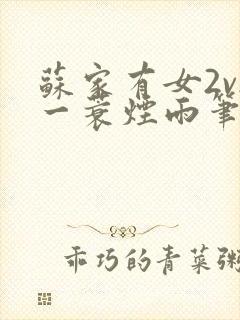 蘇家有女2v
一蓑煙雨筆
乖巧的青菜粥